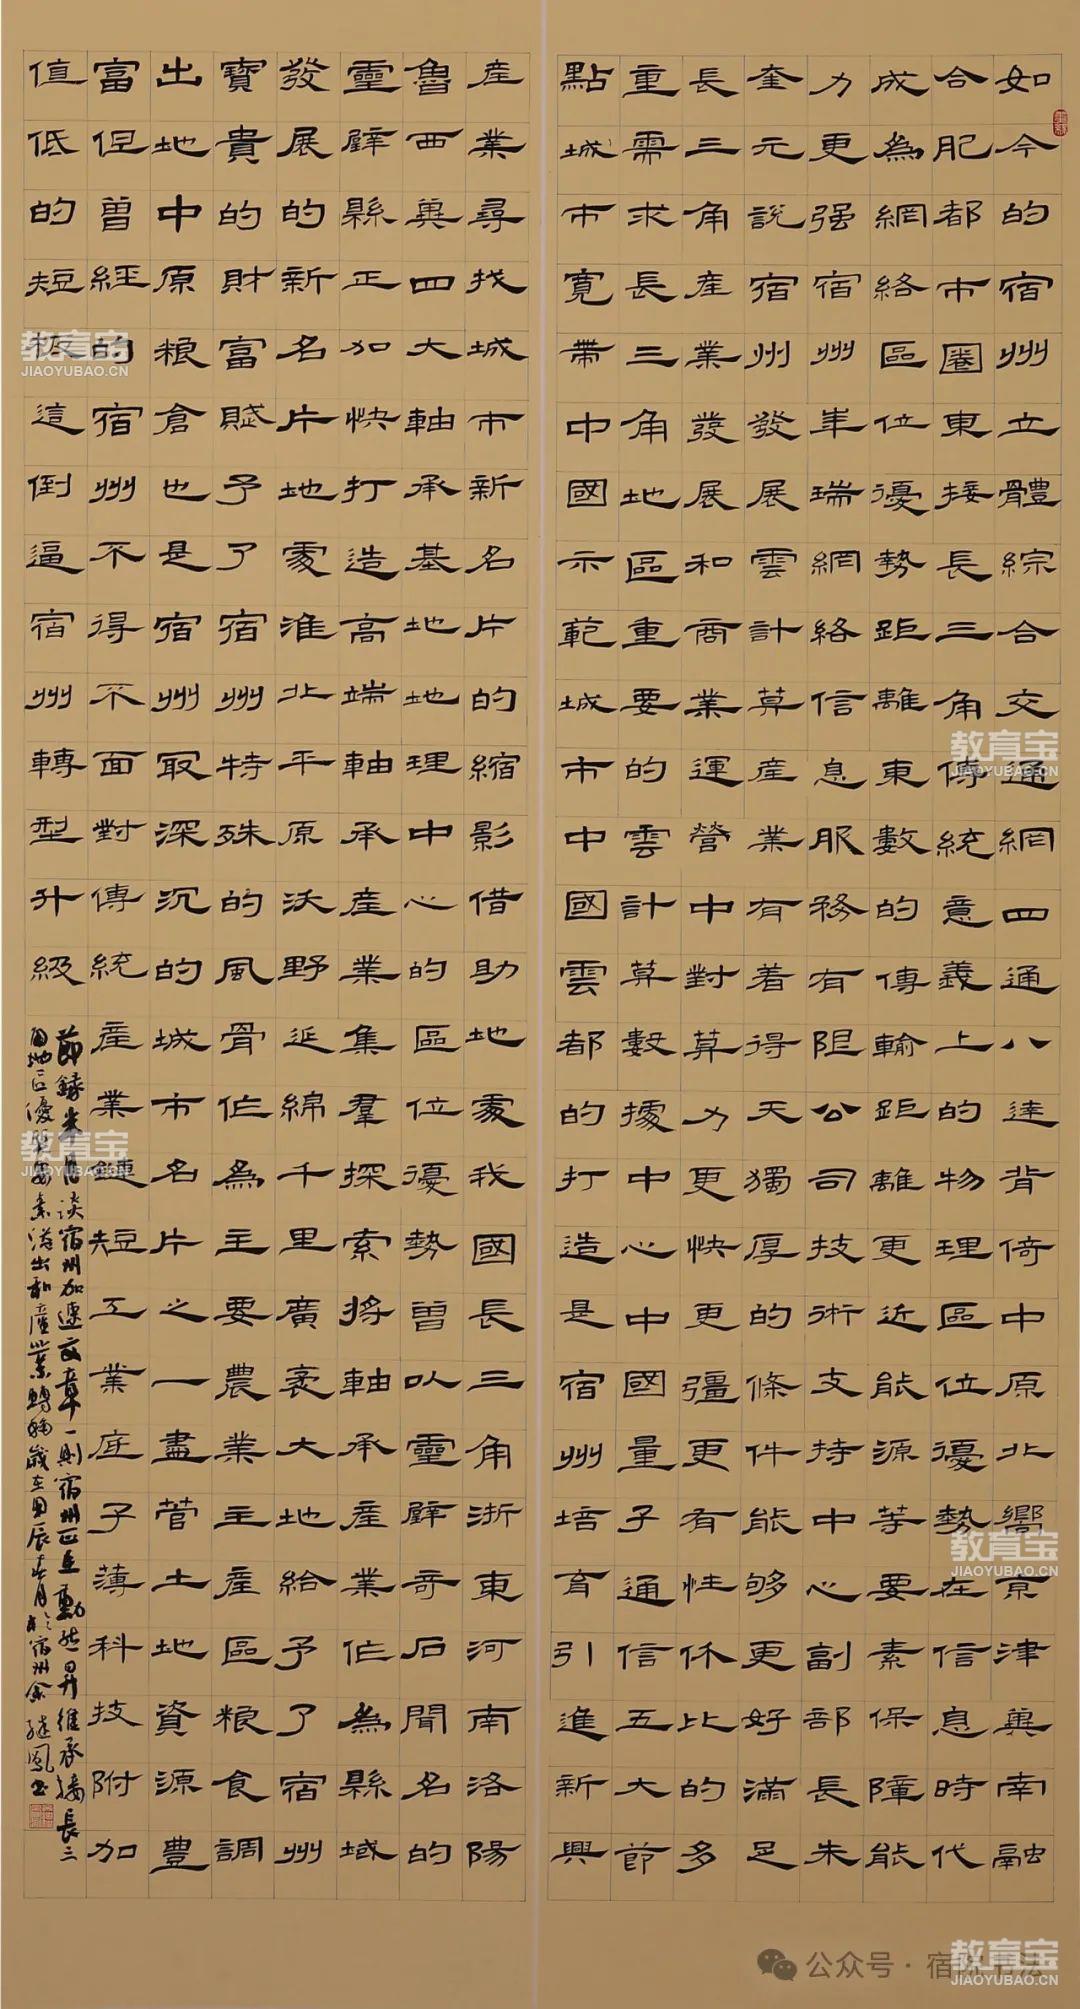 如今的宿州立體綜合交通網四通八達背倚中原北嚮京津冀南融
合肥都市圈東接長三角傳統意義上的物理區位優勢在信息時代
成為網絡區位優勢距離東數的傳輸距離更近能源等要素保障能
力更强宿州華瑞網絡信息服務有限公司技術支持中心副部長朱
奎元說宿州發展雲計算產業有着得天獨厚的條件能够更好滿足
長三角產業發展和商業運營中對算力更快更彊更有性休比的多
重需求長三角地區重要的雲計算數據中心中國量子通信五大節
點城市寬帶中國示範城市中國雲都的打造是宿州培育引進新興
產業尋找城市新名片的縮影借助地處我國長三角浙東河南洛陽
魯西冀四大軸承基地地理中心的區位優勢曾以靈璧奇石聞名的
靈璧縣正加快打造高端軸承產業集羣探索將軸承產業作為縣域
發展的新名片地處淮北平原沃野延綿千里廣袤大地給予了宿州
寶貴的財富賦予了宿州特殊的風骨作為主要農業主產區粮食調
出地中原粮倉也是宿州最深沉的城市名片之一盡管土地資源豐
富但曾經的宿州不得不面對傳統產業鏈短工業底子薄科技附加
值低的短板這倒逼宿州轉型升級
節錄半月談宿州加速文章一則宿州正主動昇維承接長三
角地區優質要素溢出和產業轉移歲在甲辰春月於宿州余鳳書
教育宝
JIAOYUBAO.CN
教育宝
JIAOYUBAO.CN
教育宝
JIAOYUBAO.CN
教育宝
JIAOYUBAO.CN
公众号·宿院书法
教育宝
JIAOYUBAO.CN